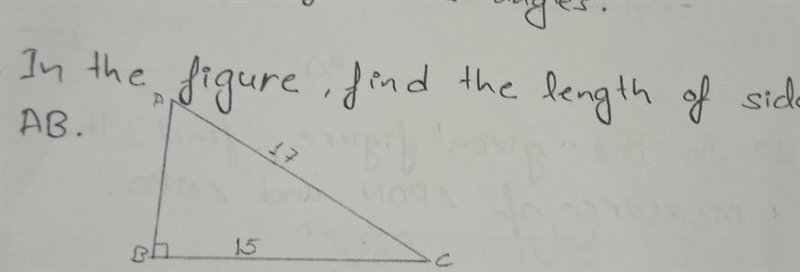 In the figure, find the length of side
AB.
A
17
B
15
C